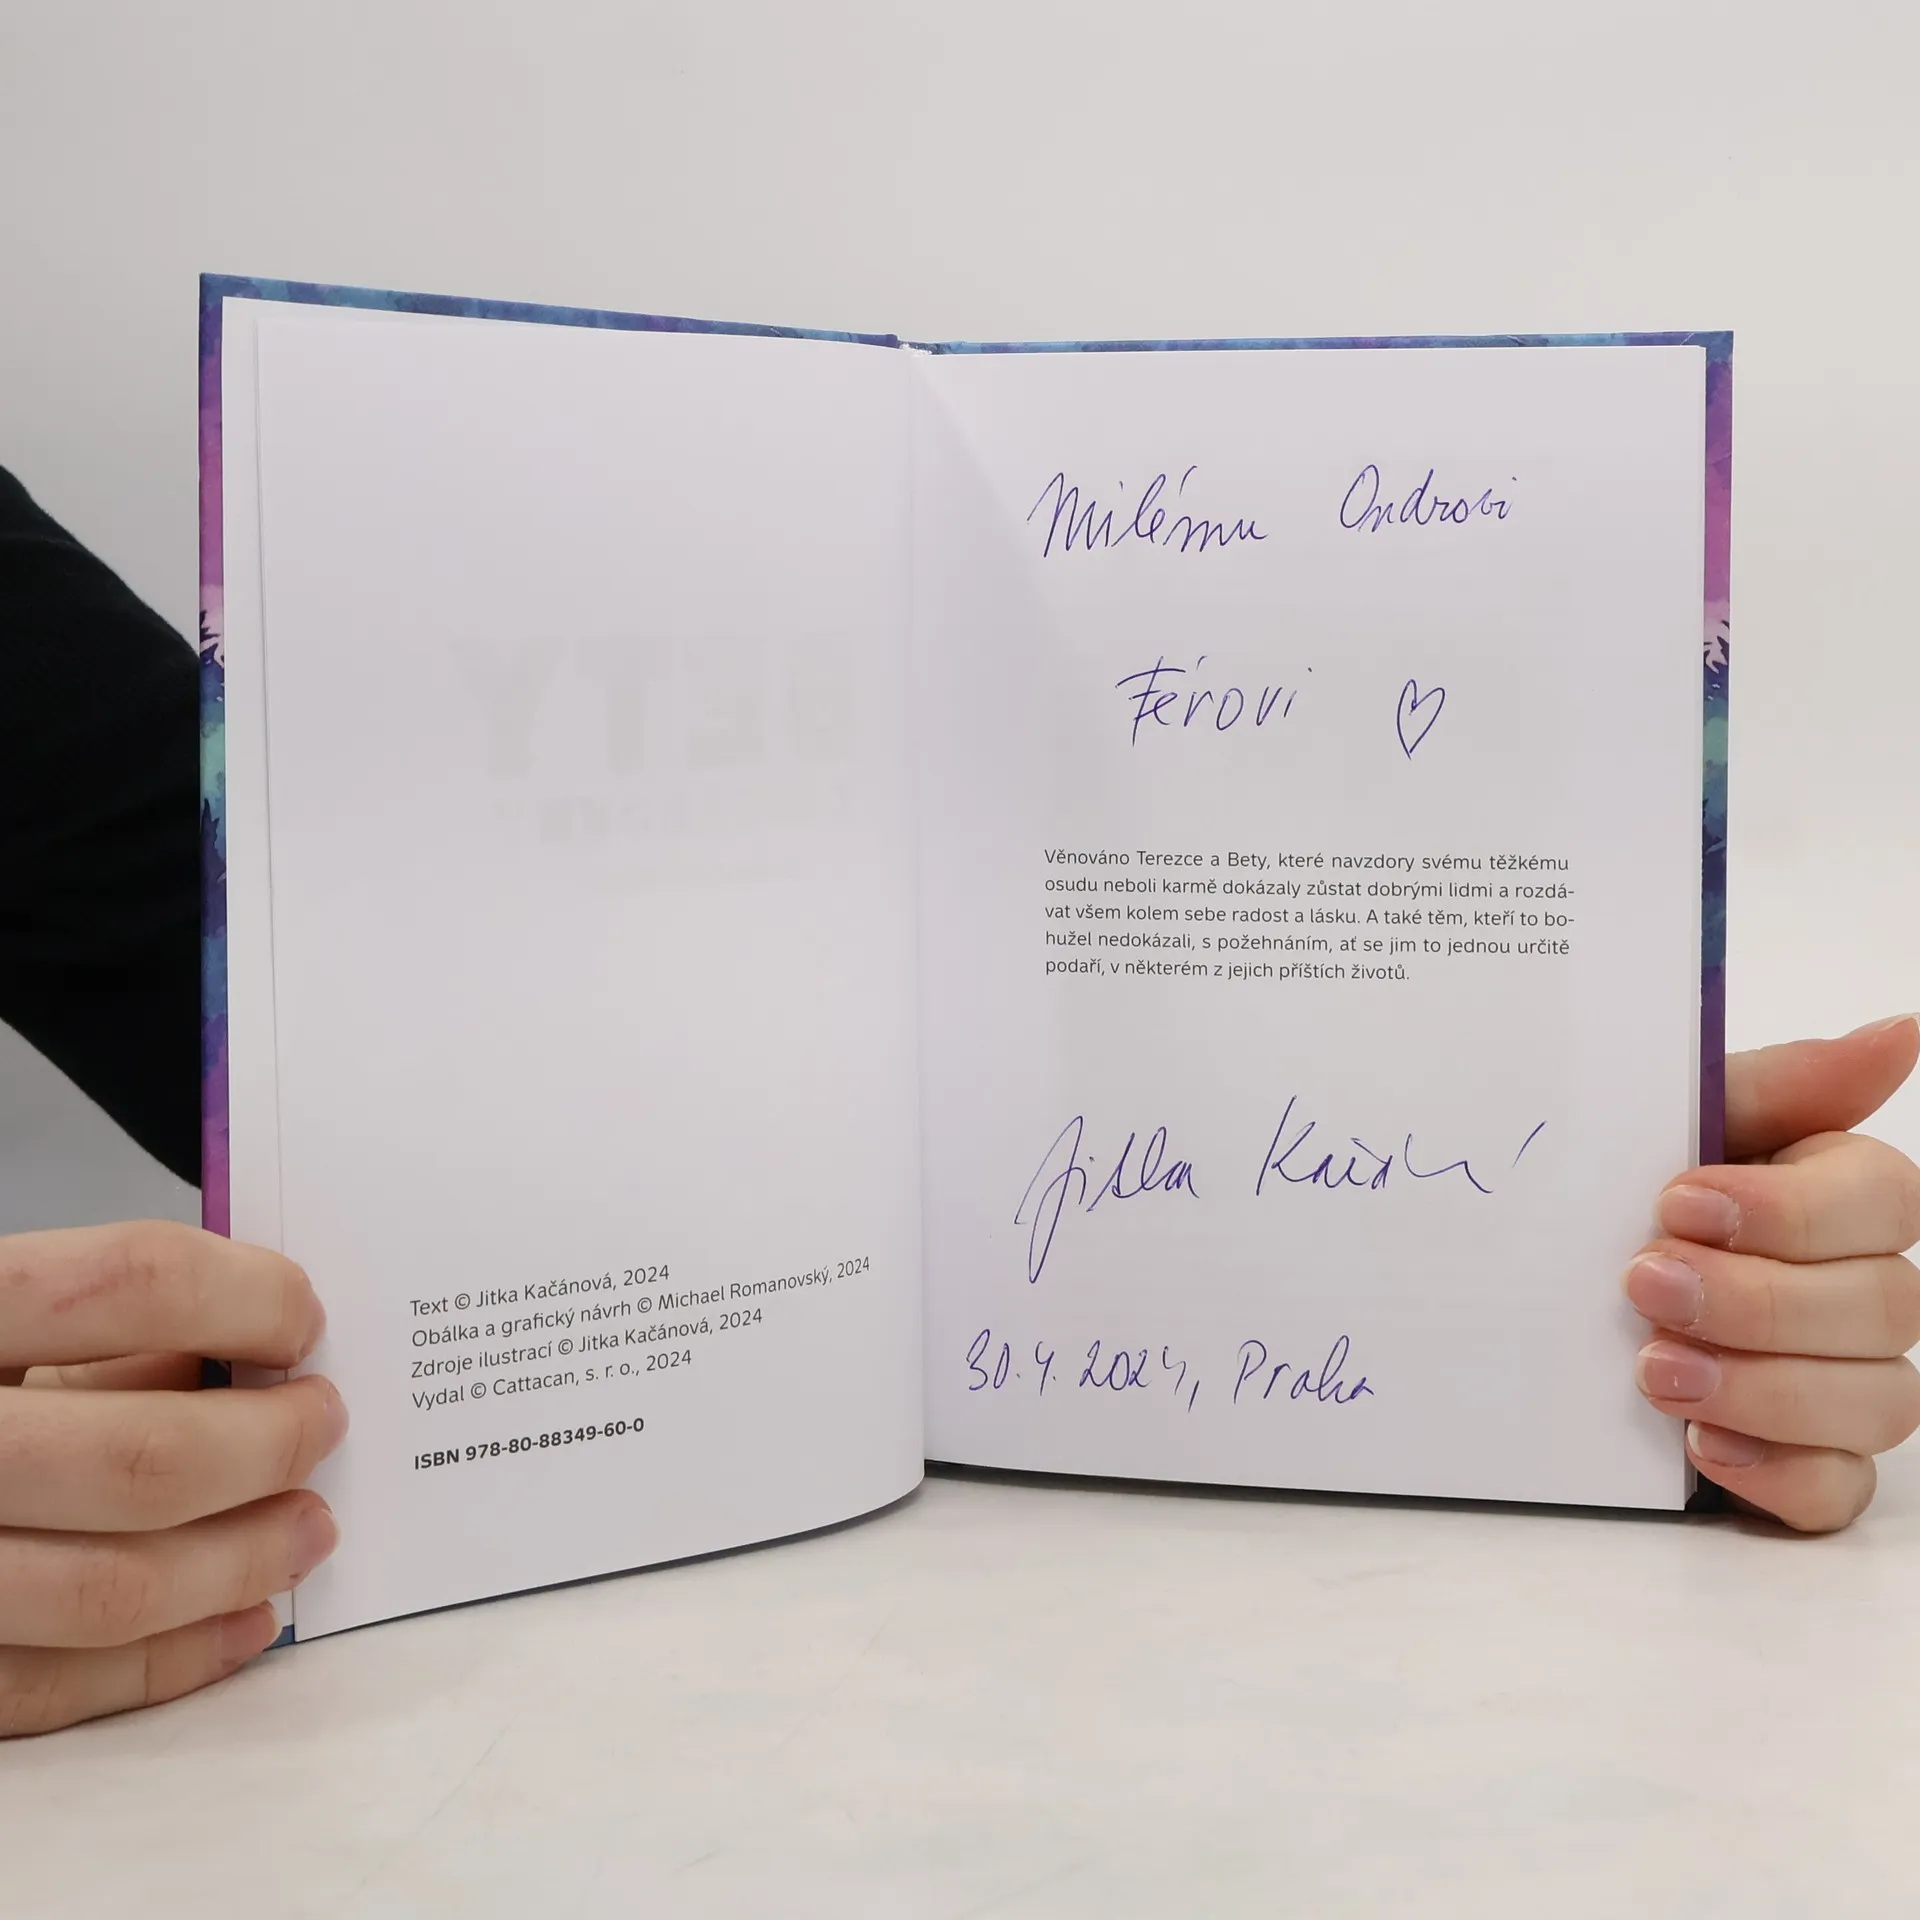 Text © Jitka Kačánová, 2024
Obálka a grafický návrh © Michael Romanovský, 2024
Zdroje ilustrací © Jitka Kačánová, 2024
Vydal © Cattacan, s. r. o., 2024
ISBN 978-80-88349-60-0
Milému Ondrovi
Férovi ♡
Věnováno Terezce a Bety, které navzdory svému těžkému
osudu neboli karmě dokázaly zůstat dobrými lidmi a rozdá-
vat všem kolem sebe radost a lásku. A také těm, kteří to bo-
hužel nedokázali, s požehnáním, ať se jim to jednou určitě
podaří, v některém z jejich příštích životů.
Jitka Kačánová
30. 4. 2024, Praha